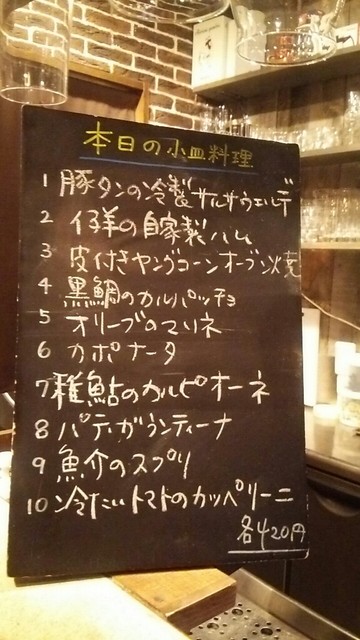 本日の小皿料理
1 豚タンの冷製サルサヴェルデ
2 仔羊の自家製ハム
3 皮付きヤングコーンオーブン焼
4 黒鯛のカルパッチョ
5 オリーブのマリネ
6 カポナータ
7 稚鮎のカルピオーネ
8 パティガランティーナ
9 魚介のスプリ
10 冷たいトマトのカッペリーニ
各420円